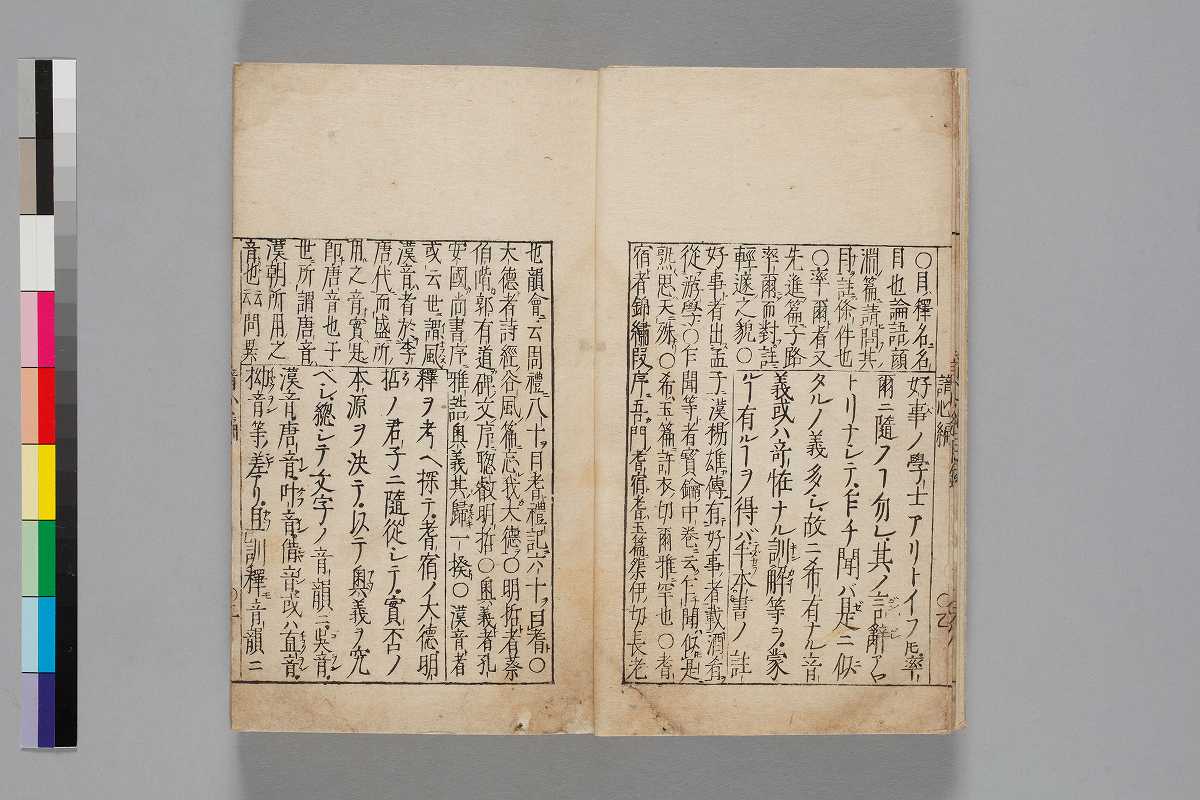 讀心編
〇目釋名名
目也論語顔
淵篇請問其
目註條件也
〇率爾者又
先進篇子路
率爾而對註
輕遽之貌〇
好事者出孟子漢楊雄傳有好事者載酒肴
從游學〇乍聞等者寳鑰中卷云乍聞似是
熟思天殊〇希玉篇許衣切爾雅罕也〇耆
宿者錦繡段序吾門耆宿耆玉篇渠伊切長老
好事ノ學士アリトイフ𪜈率
爾ニ隨フヿ勿レ其ノ言辭
トリナシテ乍チ聞バ是ニ似
タルノ義多シ故ニ希有ナル音
義或ハ竒恠ナル訓解等ヲ蒙
ルヿ有ルヿヲ得バ本書ノ註
也韻會云周禮八十曰耆禮記六十曰耆〇
大德者詩經谷風篇忘我大德〇明哲者蔡
伯喈郭有道碑文序聰叡明哲〇奥義者孔
安國尚書序雅誥奥義其歸一揆〇漢音者
或云世謂風
漢音者於李
唐代而盛所
用之音實是
即唐音也于
世所謂唐音
漢朝所用之
音也云問果
釋ヲ考ヘ探テ耆宿ノ大德明
哲ノ君子ニ隨從シテ實否ノ
本源ヲ決テ以テ奥義ヲ究
ベシ總シテ文字ノ音韻ニ吳音
漢音唐音叶音借音或ハ直音
拗音等ノ差アリ且訓釋音韻ニ